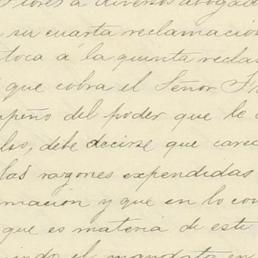 Flores a diversos abogad
su cuarta reclamacion
toca á la quinta recla
que cobra el Señor
peño del poder que le
debe decirse que care
las razones expendidas
macion y que en lo con
que es materia de este
el mandato en